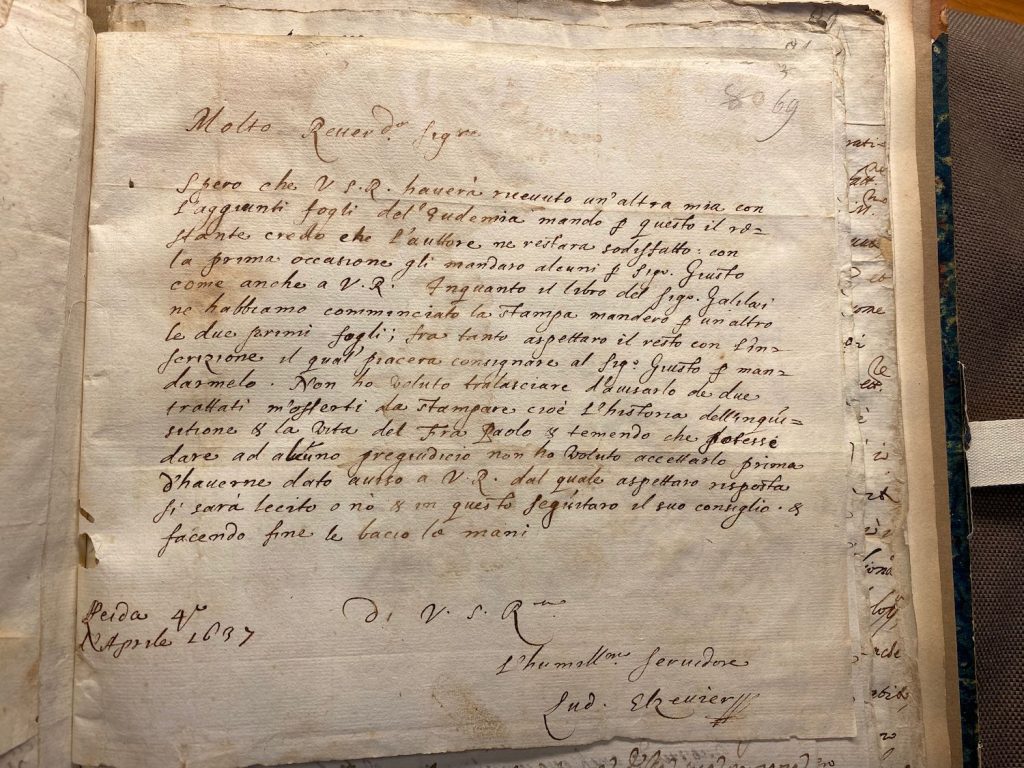 80 69
Molto Reuer.do Sig.re
Spero che V S.R. hauerà riceuuto un'altra mia con
l'aggiunti fogli del'Eudemia mando ꝑ questo il re=
stante credo che l'auttore ne restara sodisfatto: con
la prima occasione gli mandaro alcuni ꝑ Sigo. Giusto
come anche a V.R. Inquanto il libro del Sigo. Galilei
ne habbiamo comminciato la stampa manderò ꝑ un'altro
le due primi fogli; fra tanto aspettaro il resto con l'in=
scrizione il qual' piacera consignare al Sigo. Giusto ꝑ man=
darmelo. Non ho voluto tralasciare d'auisarlo de due
trattati m'offerti da stampare cioè l'historia dell'inqui=
sitione & la vita del Fra Paolo & temendo che potesse
dare ad alcuno pregiudicio non ho voluto accettarlo prima
d'hauerne dato auiso a V.R. dal quale aspettaro risposta
si sarà lecito o nò & in questo seguitaro il suo consiglio. &
facendo fine le bacio le mani
Leida 4.to
Aprile 1637
Di V. S. R.ma
L'humill.mo seruidore
Lud. Elzeuier